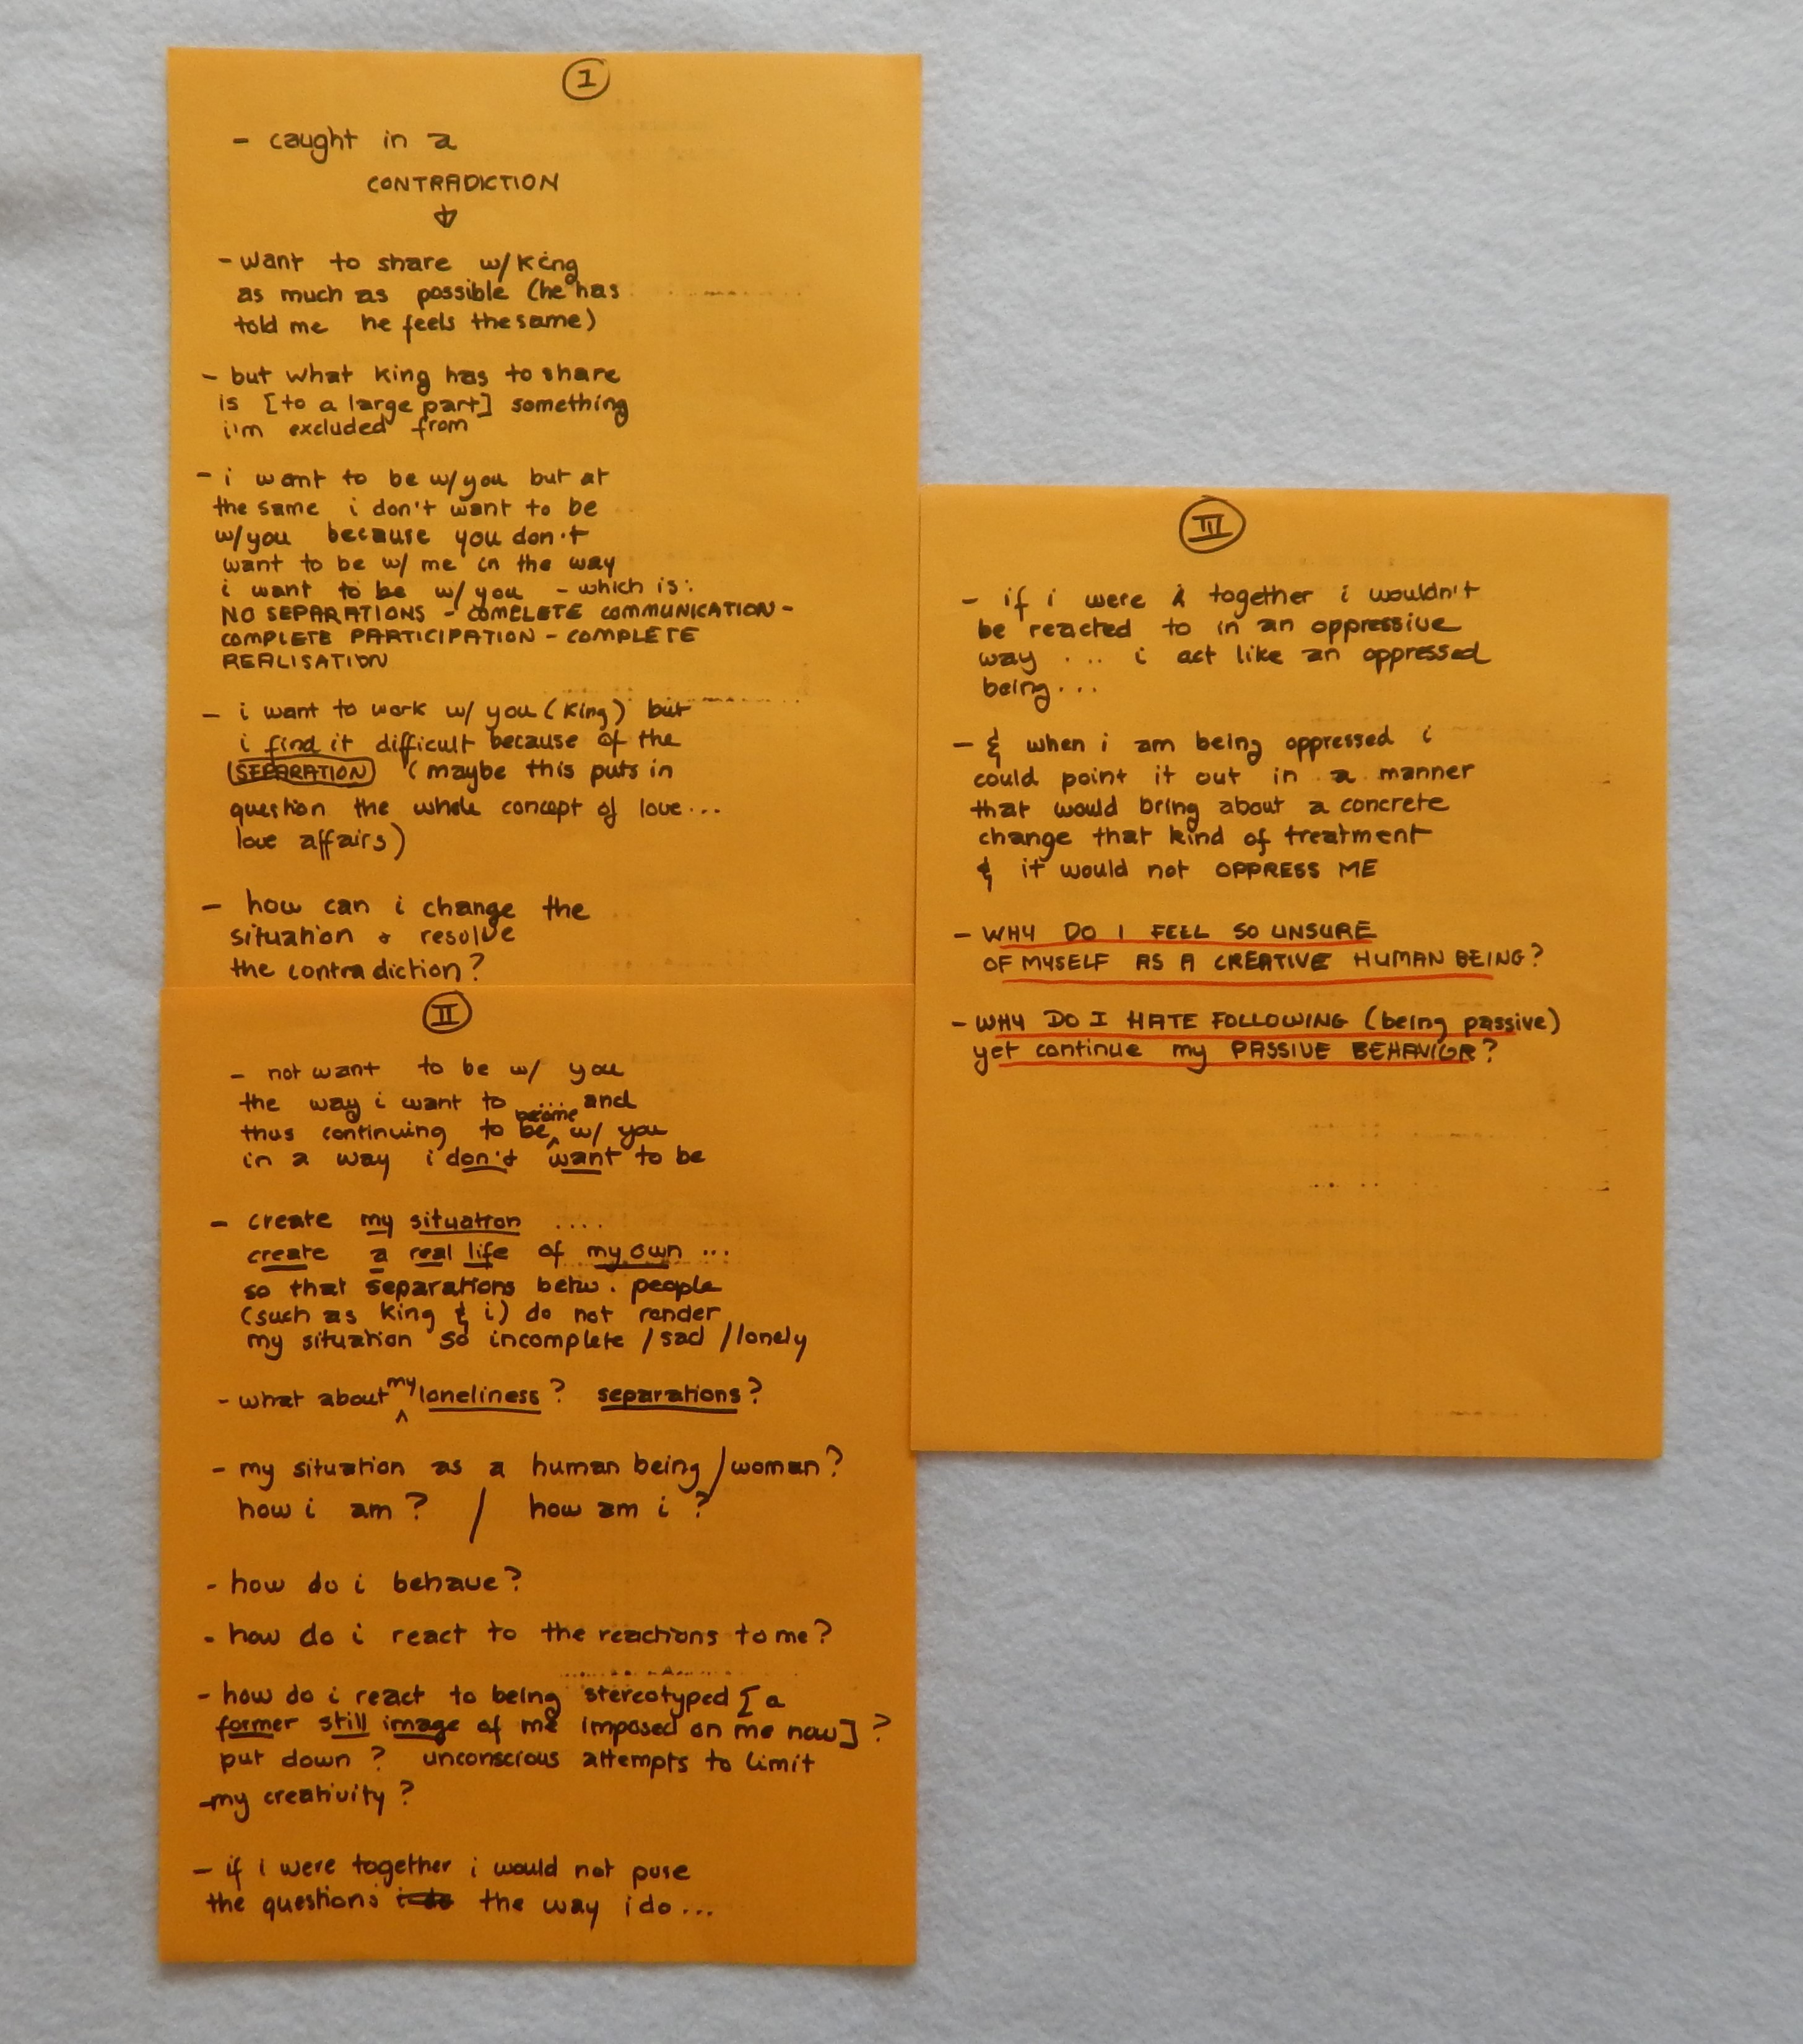 1
- caught in a
CONTRADICTION
- want to share w/King
as much as possible (he has
told me he feels the same)
- but what King has to share
is [to a large part] something
i'm excluded from
- i want to be w/you but at
the same i don't want to be
w/you because you don't
want to be w/ me in the way
i want to be w/ you - which is:
NO SEPARATIONS - COMPLETE COMMUNICATION -
COMPLETE PARTICIPATION - COMPLETE
REALISATION
- i want to work w/ you (King) but
i find it difficult because of the
SEPARATION (maybe this puts in
question the whole concept of love...
love affairs)
- how can i change the
situation & resolve
the contradiction?
II
- not want to be w/ you
the way i want to ... and
become
thus continuing to be w/ you
in a way i don't want to be
- create my situation ....
create a real life of my own ...
so that separations betw. people
(such as King & i) do not render
my situation so incomplete /sad /lonely
- what about my loneliness? separations?
- my situation as a human being / woman?
how i am? / how am i?
- how do i behave?
- how do i react to the reactions to me?
- how do i react to being stereotyped [a
former still image of me imposed on me now]?
put down? unconscious attempts to limit
my creativity?
- if i were together i would not puse
the questions the way i do...
III
- if i were together i wouldn't
be reacted to in an oppressive
way .... i act like an oppressed
being...
- & when i am being oppressed i
could point it out in a manner
that would bring about a concrete
change that kind of treatment
& it would not OPPRESS ME
- WHY DO I FEEL SO UNSURE
OF MYSELF AS A CREATIVE HUMAN BEING?
- WHY DO I HATE FOLLOWING (being passive)
yet continue my PASSIVE BEHAVIOR?